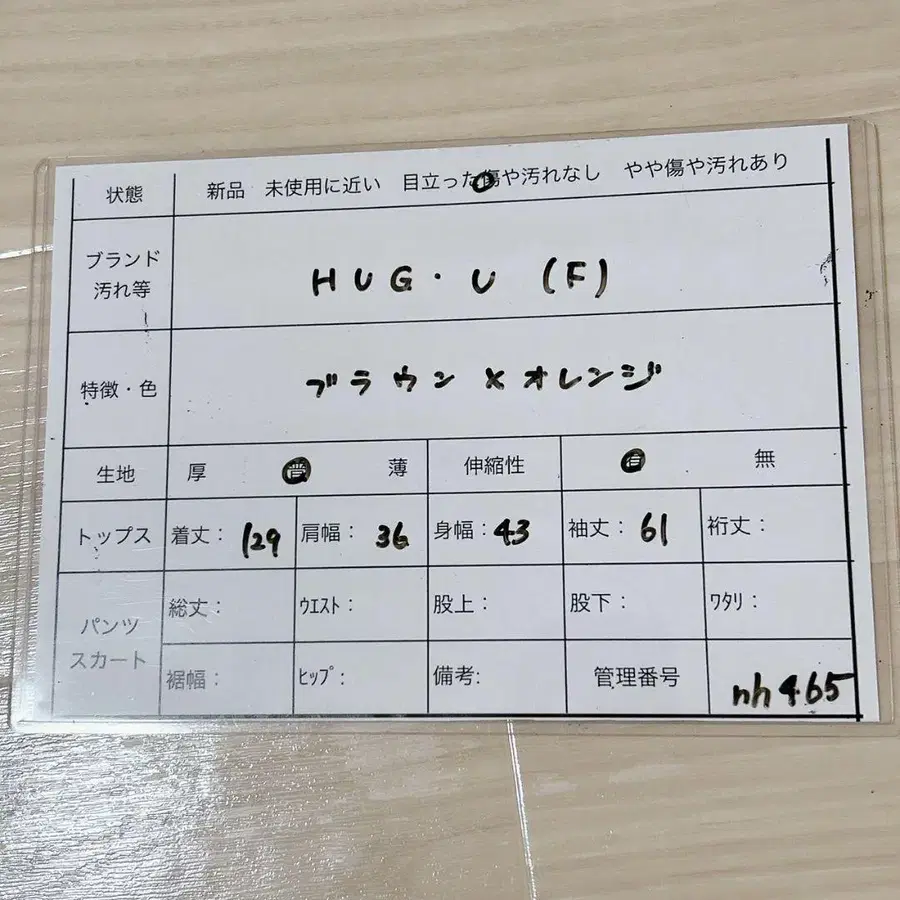 状態 新品 未使用に近い 目立った傷や汚れなし やや傷や汚れあり
ブランド
汚れ等
HUG・U (F)
特徴・色 ブラウン×オレンジ
生地 厚 普 薄 伸縮性 有 無
トップス 着丈: 129 肩幅: 36 身幅: 43 袖丈: 61 裄丈:
パンツ
スカート
総丈: ウエスト: 股上: 股下: ワタリ:
裾幅: ヒップ: 備考: 管理番号 nh465